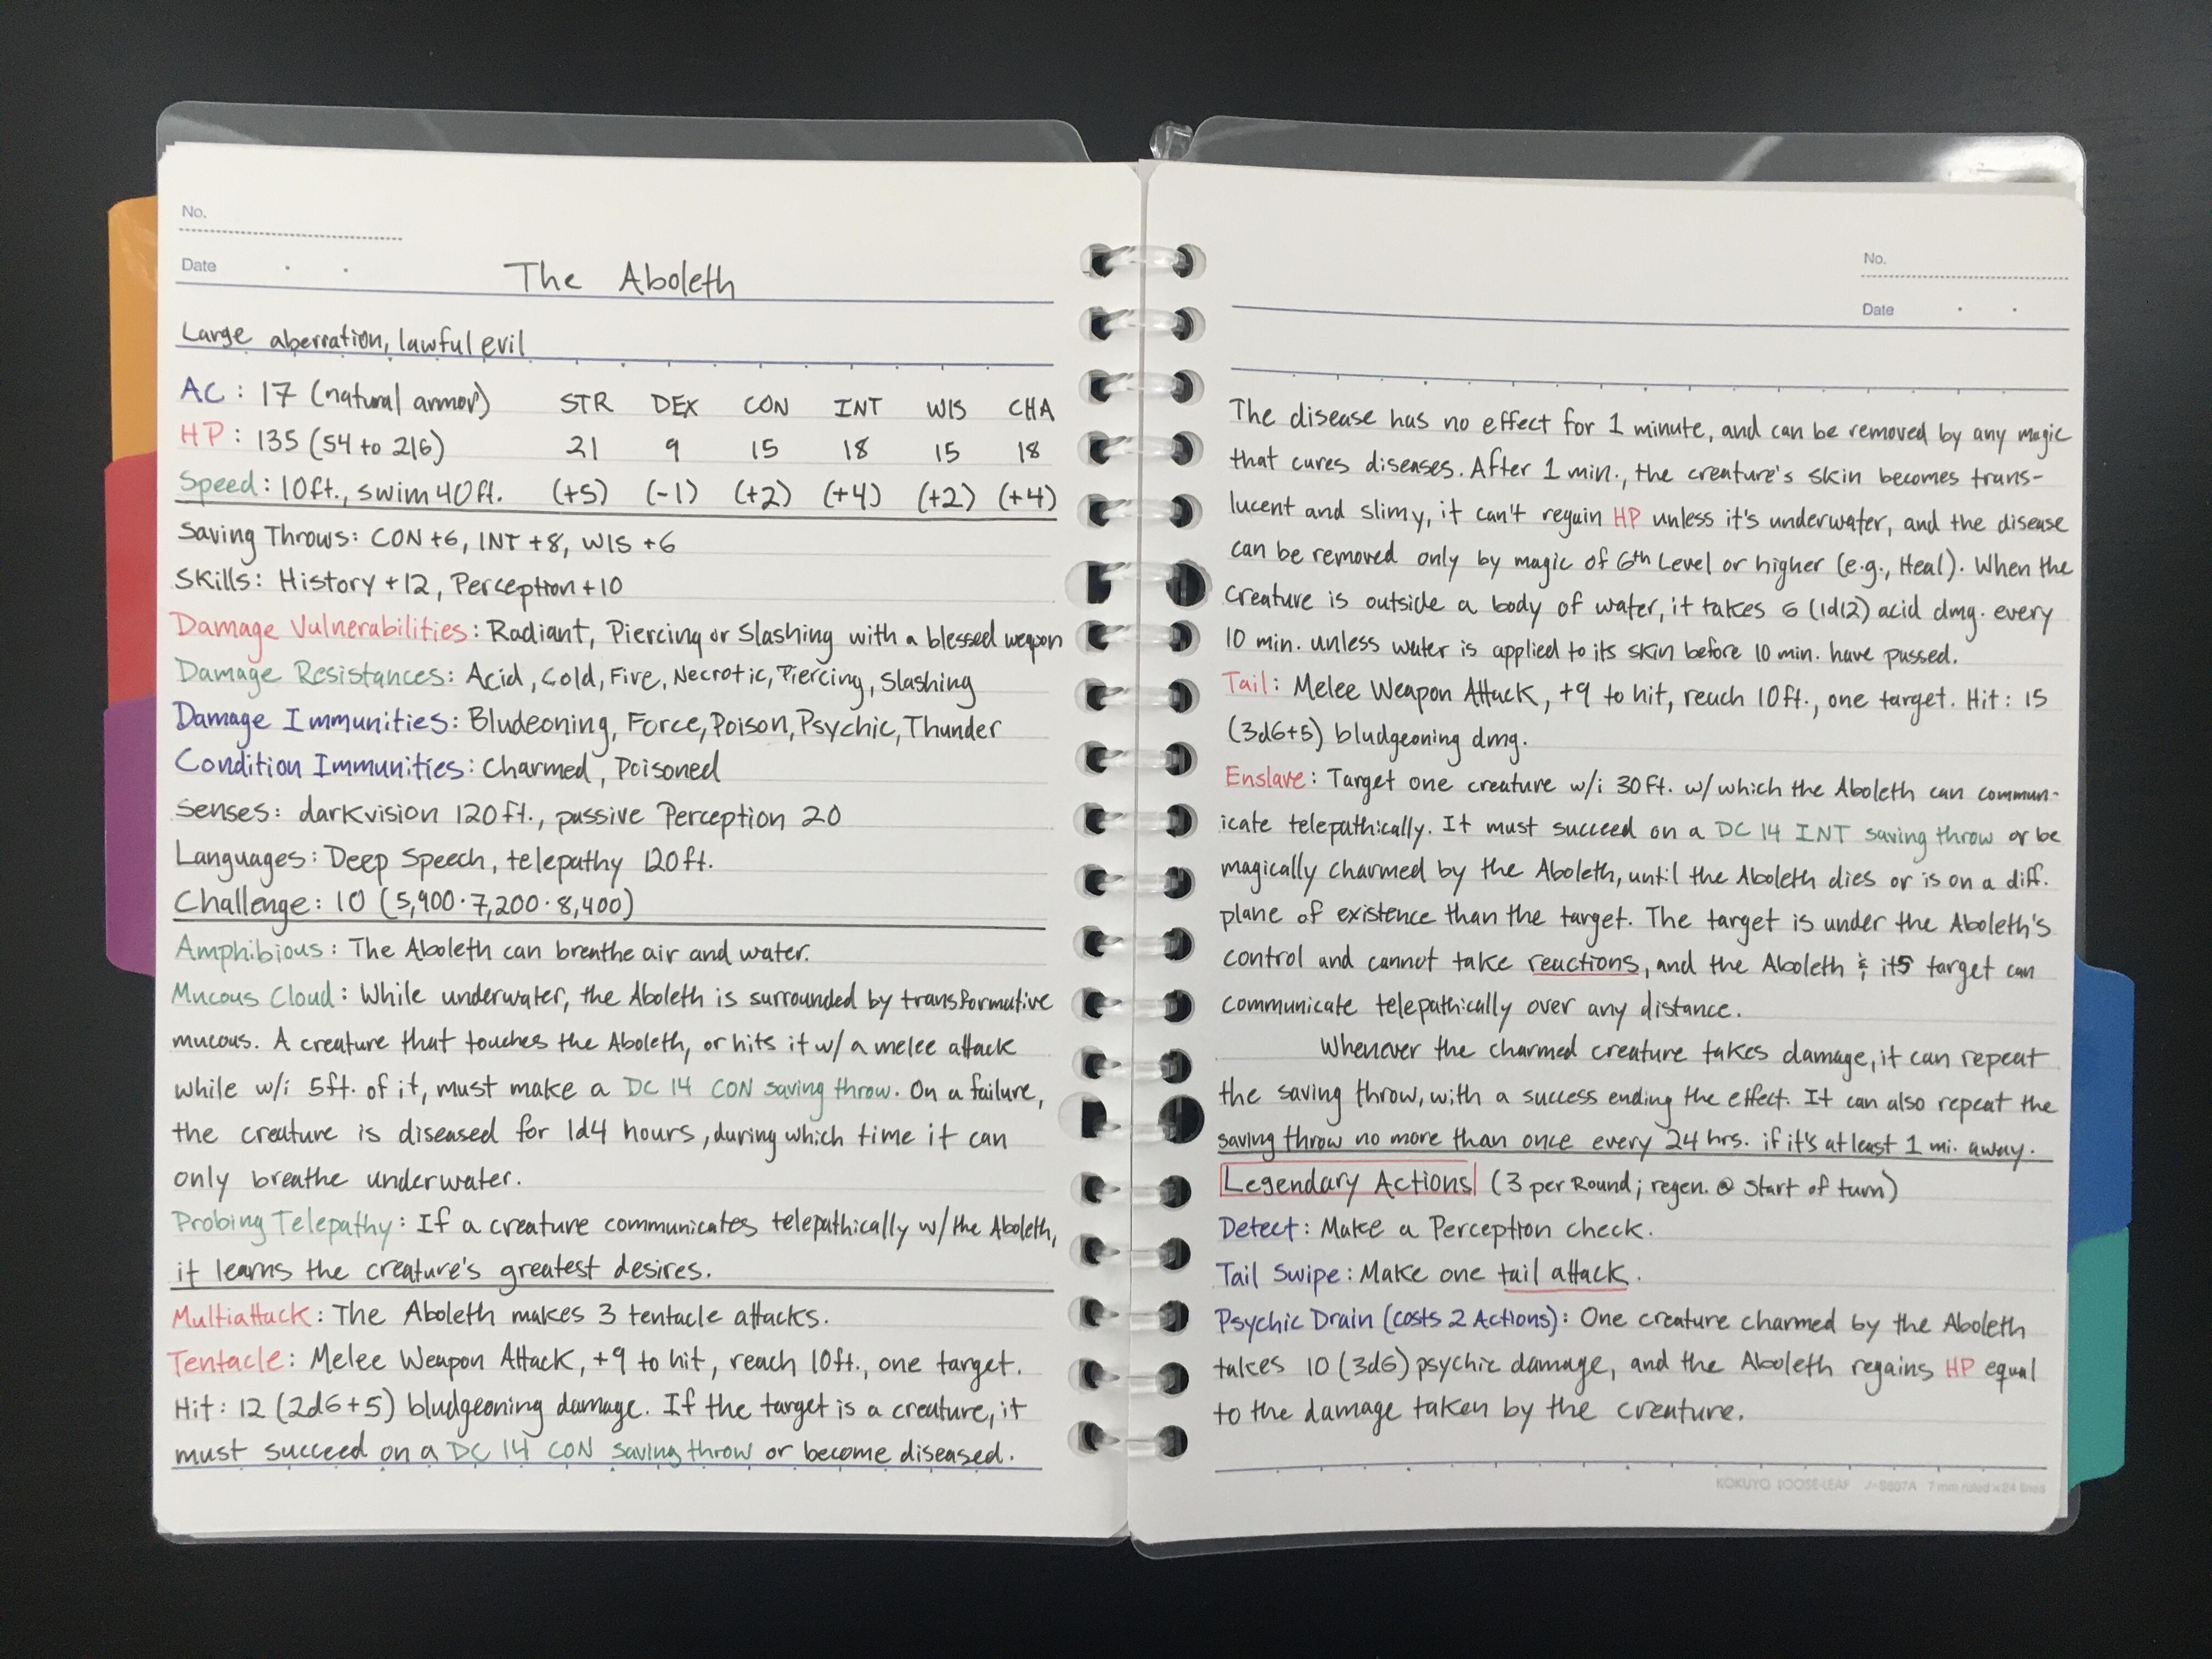 No.
Date
The Aboleth
Large aberration, lawful evil
AC: 17 (natural armor) STR DEX CON INT WIS CHA
HP: 135 (54 to 216) 21 9 15 18 15 18
Speed: 10ft., swim 40ft. (+5) (-1) (+2) (+4) (+2) (+4)
Saving Throws: CON +6, INT +8, WIS +6
Skills: History +12, Perception +10
Damage Vulnerabilities: Radiant, Piercing or Slashing with a blessed weapon
Damage Resistances: Acid, Cold, Fire, Necrotic, Piercing, Slashing
Damage Immunities: Bludeoning, Force, Poison, Psychic, Thunder
Condition Immunities: Charmed, Poisoned
Senses: darkvision 120ft., passive Perception 20
Languages: Deep Speech, telepathy 120ft.
Challenge: 10 (5,900·7,200·8,400)
Amphibious: The Aboleth can breathe air and water.
Mucous Cloud: While underwater, the Aboleth is surrounded by transformative
mucous. A creature that touches the Aboleth, or hits it w/ a melee attack
while w/i 5ft. of it, must make a DC 14 CON saving throw. On a failure,
the creature is diseased for 1d4 hours, during which time it can
only breathe underwater.
Probing Telepathy: If a creature communicates telepathically w/ the Aboleth,
it learns the creature's greatest desires.
Multiattack: The Aboleth makes 3 tentacle attacks.
Tentacle: Melee Weapon Attack, +9 to hit, reach 10ft., one target.
Hit: 12 (2d6+5) bludgeoning damage. If the target is a creature, it
must succeed on a DC 14 CON saving throw or become diseased.
No.
Date
The disease has no effect for 1 minute, and can be removed by any magic
that cures diseases. After 1 min., the creature's skin becomes trans-
lucent and slimy, it can't regain HP unless it's underwater, and the disease
can be removed only by magic of 6th Level or higher (e.g., Heal). When the
creature is outside a body of water, it takes 6 (1d12) acid dmg. every
10 min. unless water is applied to its skin before 10 min. have passed.
Tail: Melee Weapon Attack, +9 to hit, reach 10ft., one target. Hit: 15
(3d6+5) bludgeoning dmg.
Enslave: Target one creature w/i 30ft. w/ which the Aboleth can commun-
icate telepathically. It must succeed on a DC 14 INT saving throw or be
magically charmed by the Aboleth, until the Aboleth dies or is on a diff.
plane of existence than the target. The target is under the Aboleth's
control and cannot take reactions, and the Aboleth & its target can
communicate telepathically over any distance.
Whenever the charmed creature takes damage, it can repeat
the saving throw, with a success ending the effect. It can also repeat the
saving throw no more than once every 24 hrs. if it's at least 1 mi. away.
Legendary Actions (3 per Round; regen. @ start of turn)
Detect: Make a Perception check.
Tail Swipe: Make one tail attack.
Psychic Drain (costs 2 Actions): One creature charmed by the Aboleth
takes 10 (3d6) psychic damage, and the Aboleth regains HP equal
to the damage taken by the creature.
KOKUYO LOOSE-LEAF 7 mm ruled x 24 lines